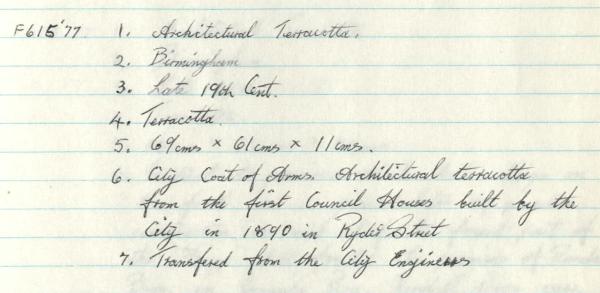 F615'77 1. Architectural Terracotta.
2. Birmingham
3. Late 19th Cent.
4. Terracotta.
5. 69cms × 61cms × 11cms.
6. City Coat of Arms. Architectural terracotta
from the first Council Houses built by the
City in 1890 in Ryder Street
7. Transfered from the City Engineers